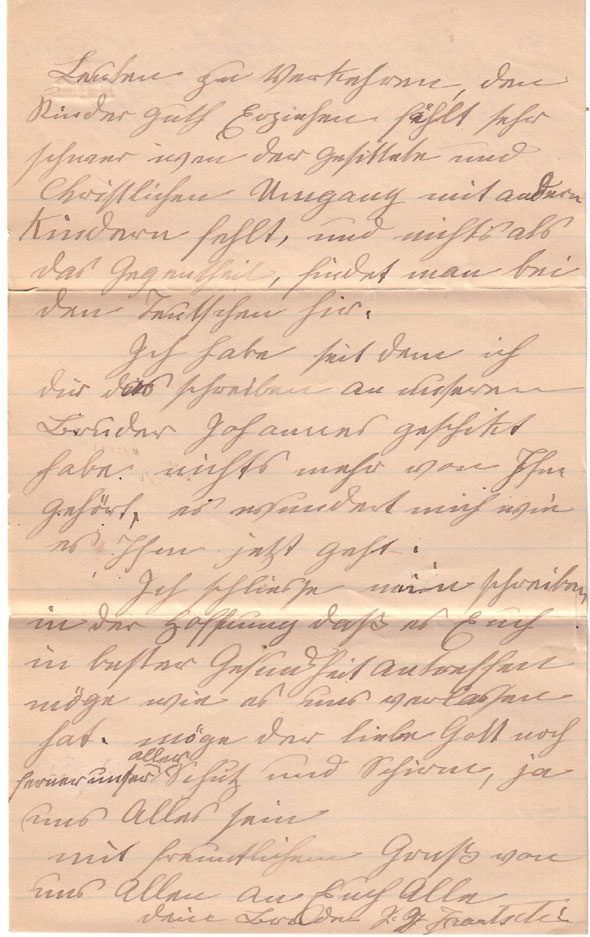 Leuten zu Verkehren, den
Kinder guth Erziehen fählt sehr
schwer wen der gesittete und
Christlichen Umgang mit andern
Kindern fehlt, und nichts als
das Gegentheil, findet man bei
den Teutschen hir.
Ich habe seit dem ich
dir das schreiben an unseren
Bruder Johannes geschikt
habe nichts mehr von Ihm
gehört, es wundert mich wie
es Ihm jetzt geht.
Ich schliesse mein schreiben
in der Hoffnung daß es Euch
in bester Gesundheit antreffen
möge wie es uns verlassen
hat. möge der liebe Gott noch
ferner unser aller Schutz und Schirm, ja
uns Alles sein
mit freuntlichem Gruß von
uns Allen an Euch Alle
dein Bruder J. G.